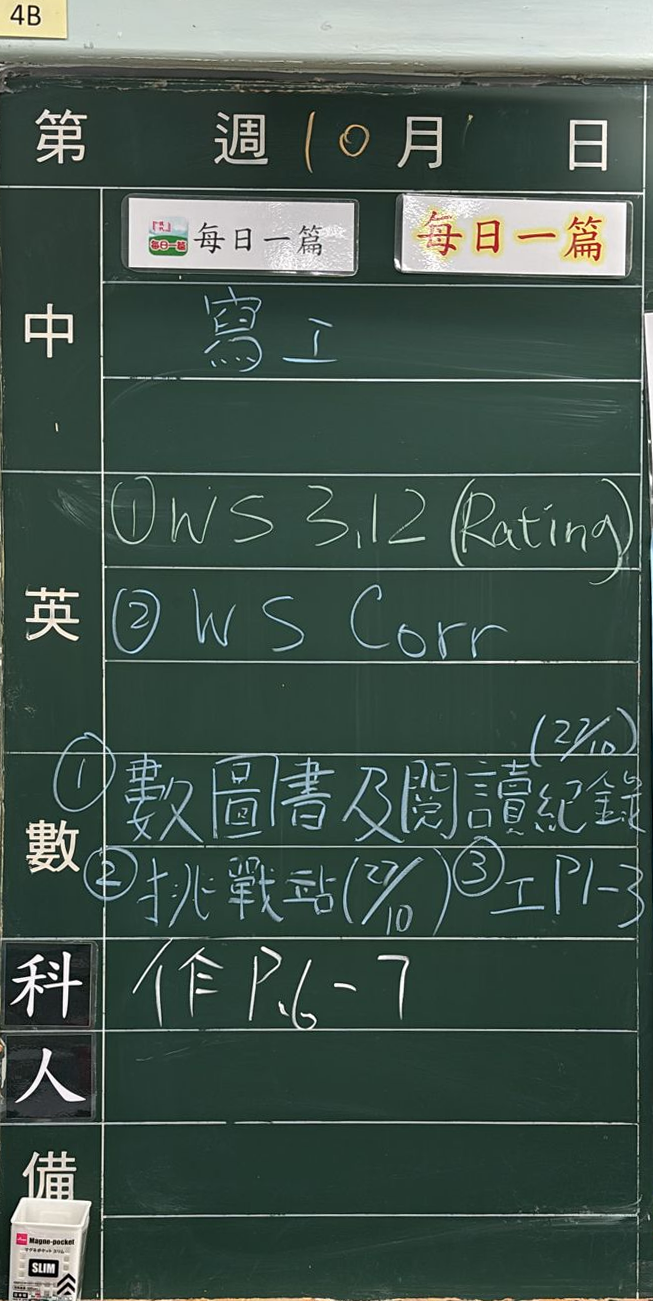 4B
第 週 10 月 日
每日一篇 每日一篇 每日一篇
中
寫工
英
① WS 3,12 (Rating)
② WS Corr
數
(27/10)
① 數圖書及閱讀紀錄
② 挑戰站(27/10) ③ 工P1-3
科
作 P.6-7
人
備
Magne-pocket
SLIM